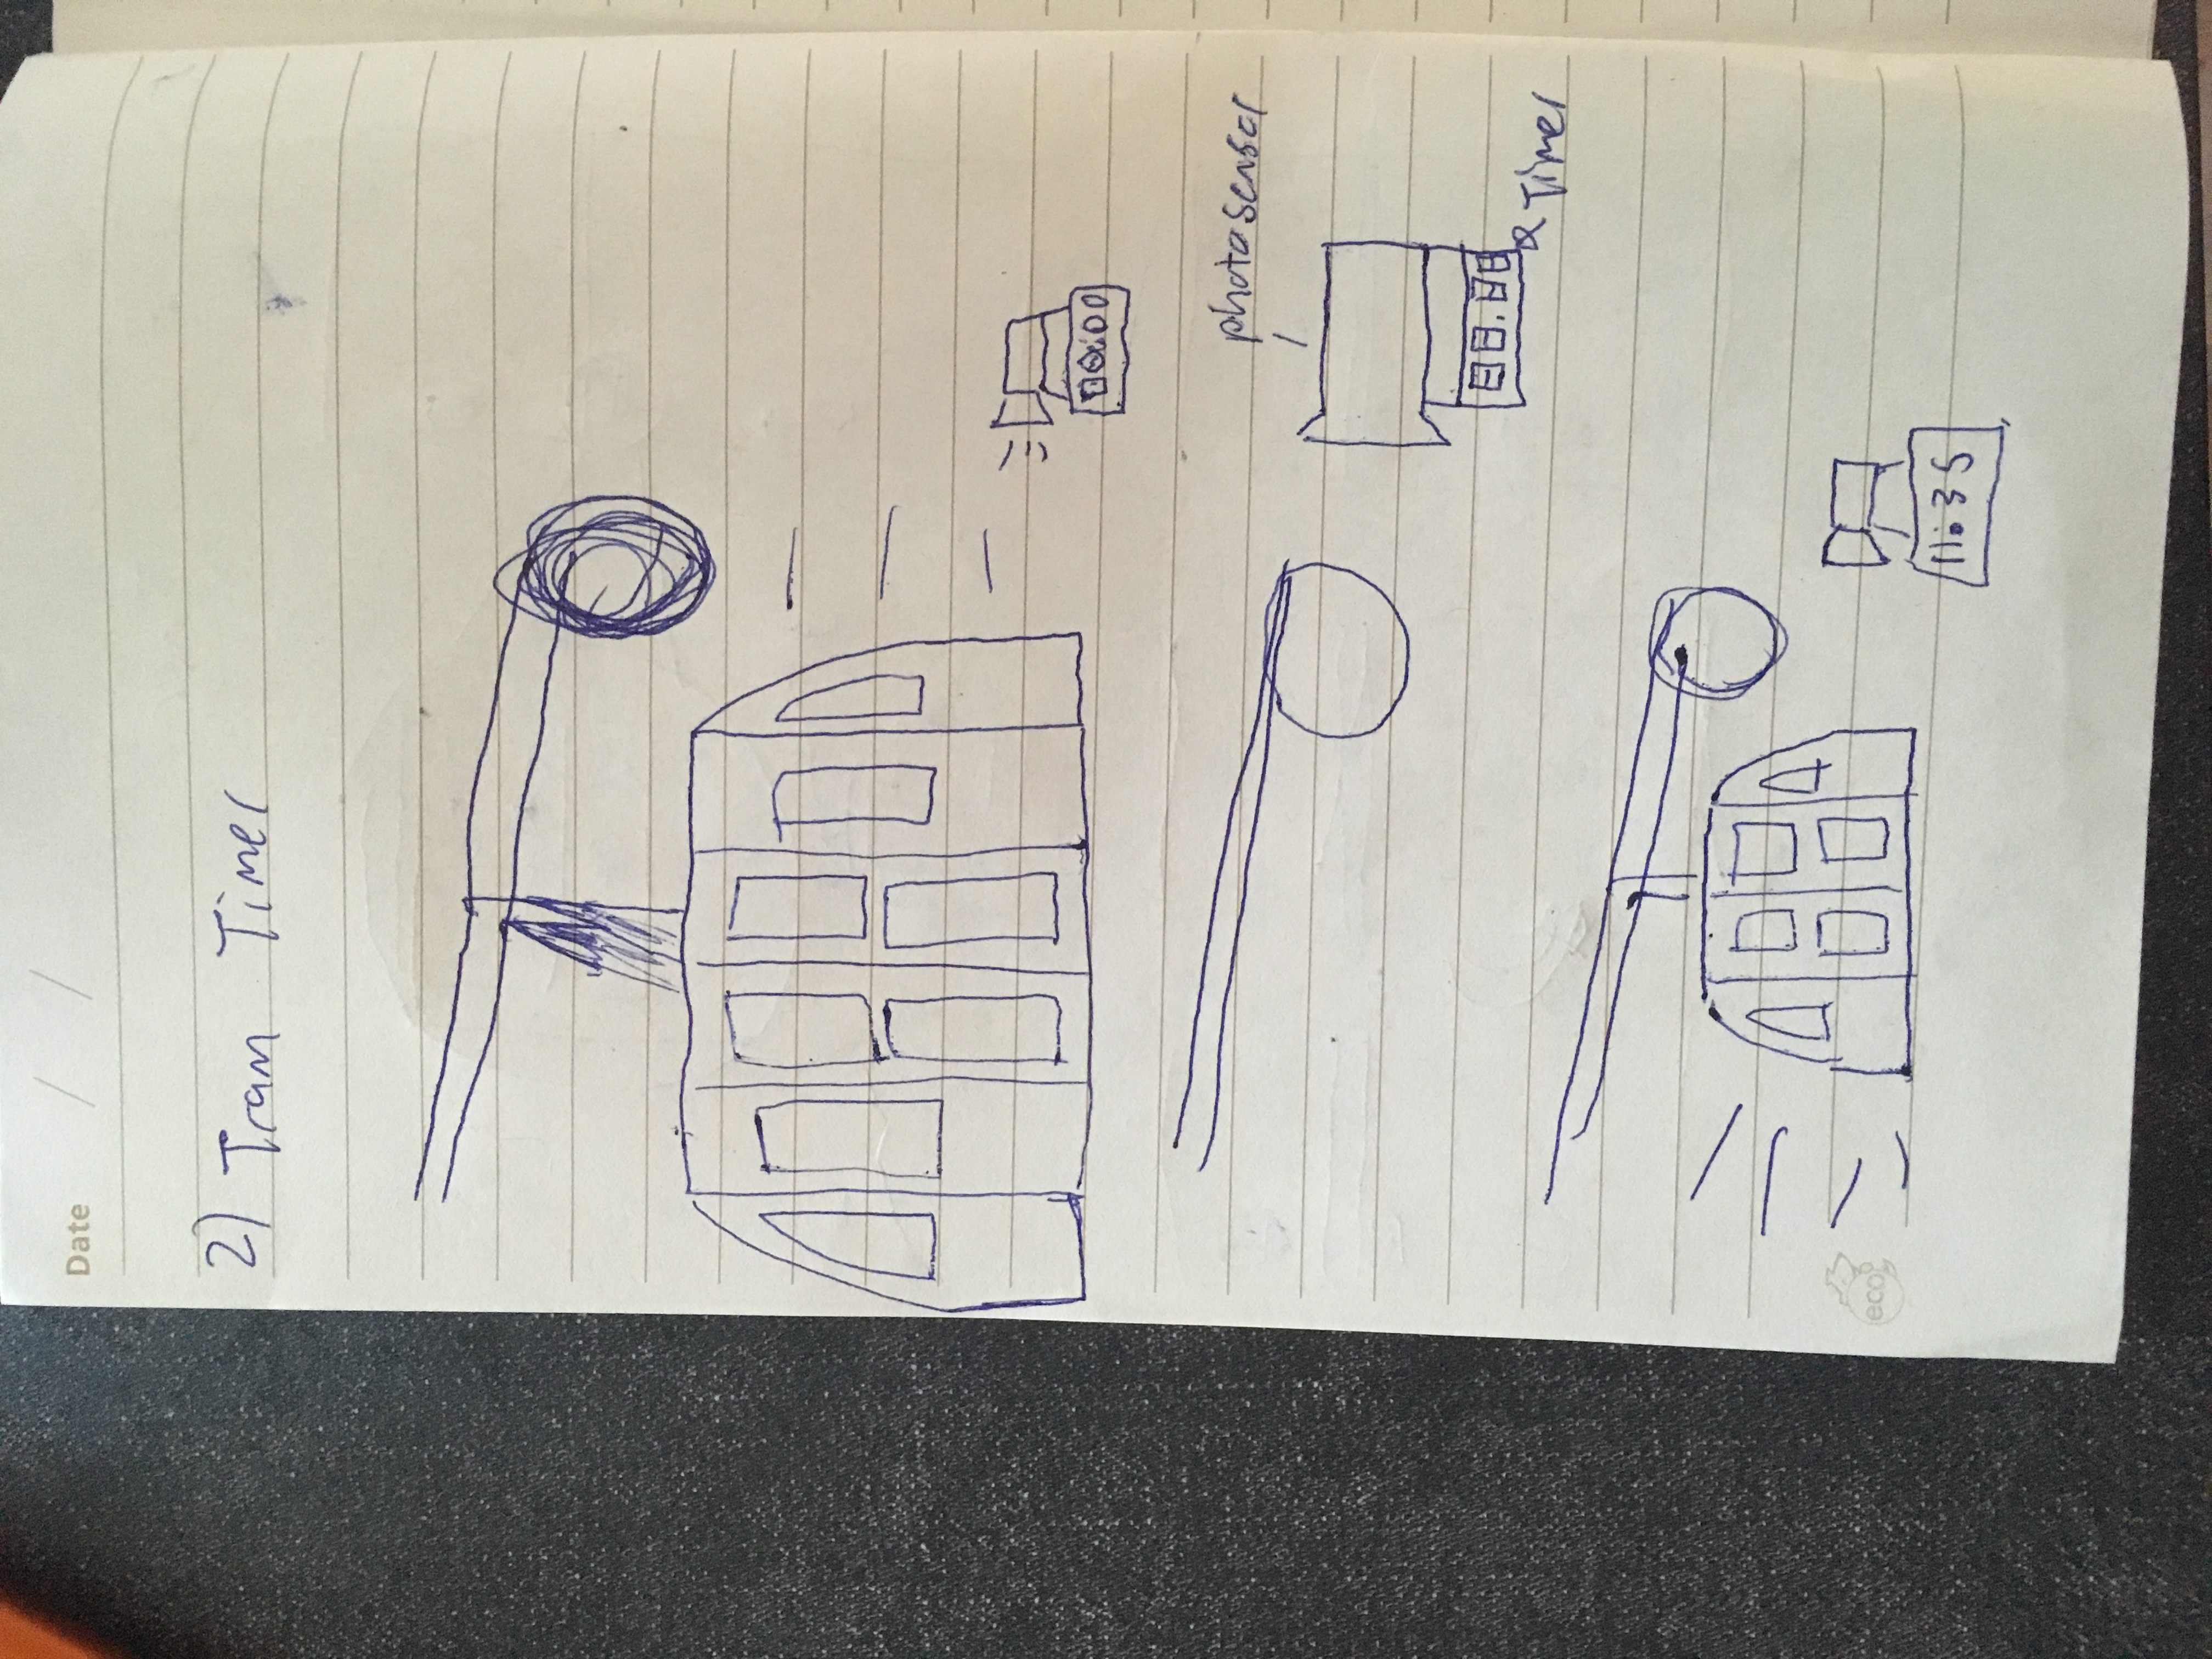 Date / /
2) Tram Timer
00:00
photosensor
88.88
Timer
11:35
eco